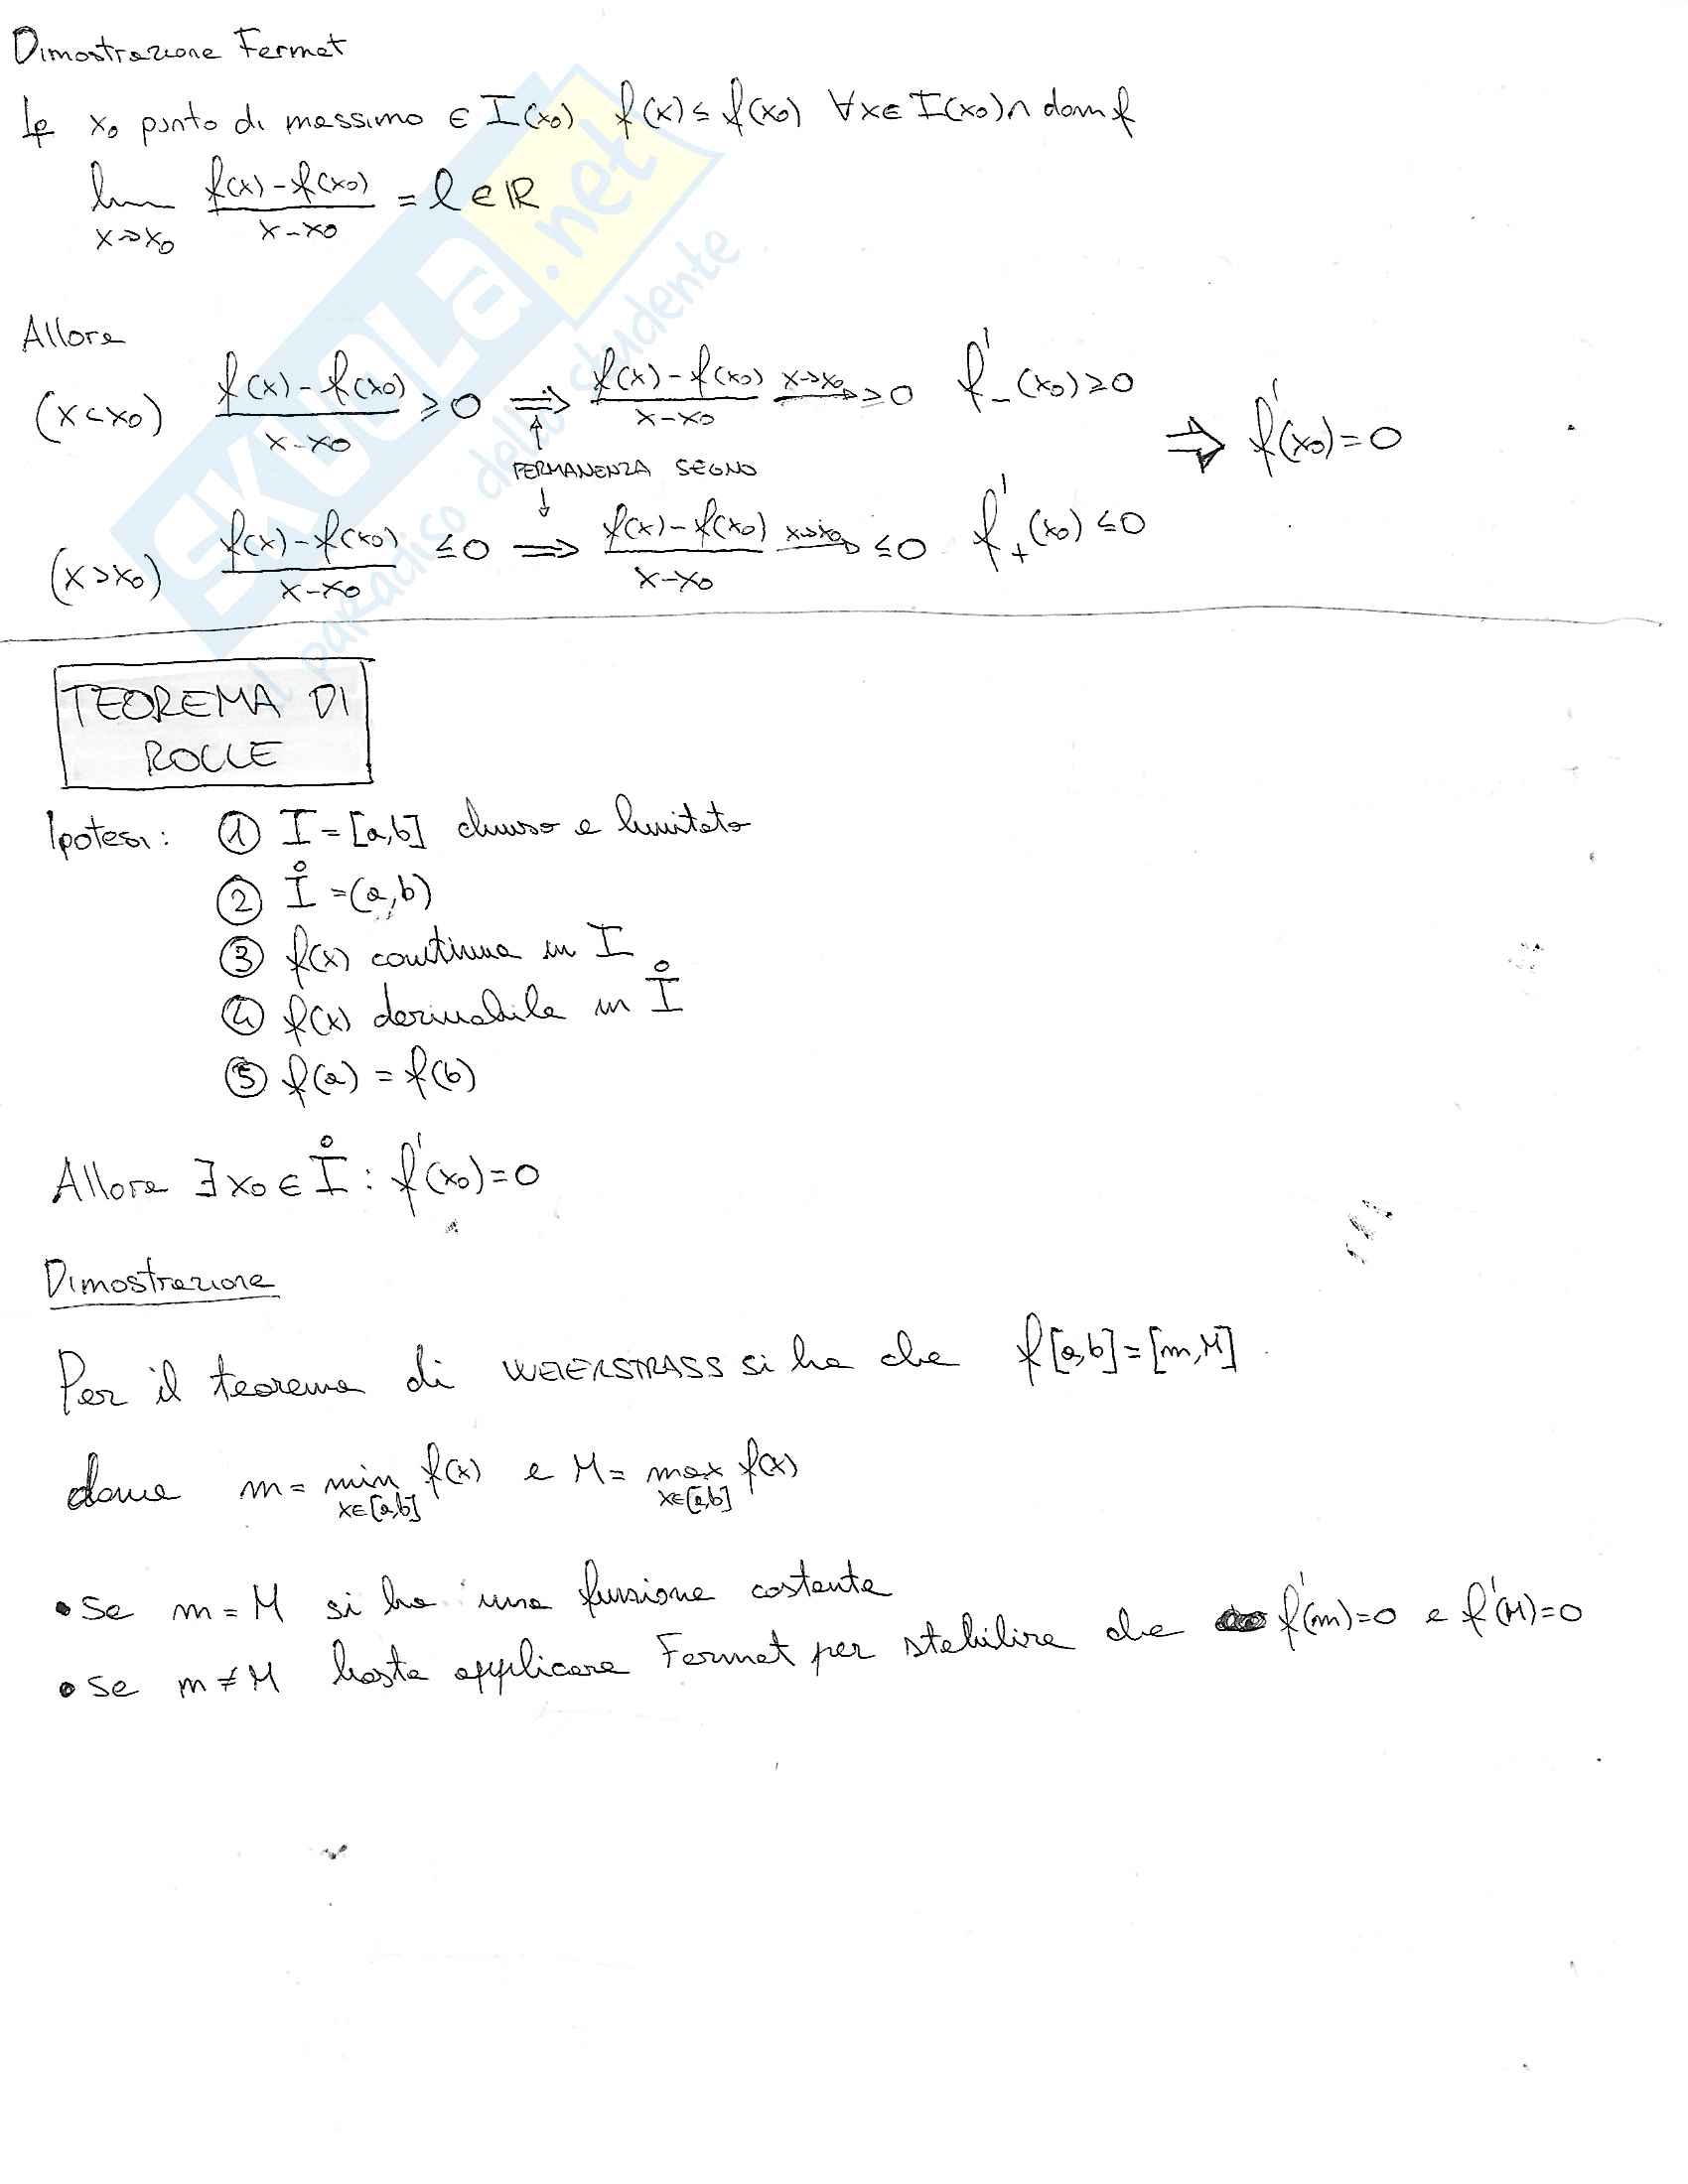 Dimostrazione Fermat
Ip x₀ punto di massimo ∈ I(x₀) f(x) ≤ f(x₀) ∀x∈ I(x₀)∩ dom f
lim x→x₀ f(x)-f(x₀) / x-x₀ = l ∈ ℝ
Allora
(x<x₀) f(x)-f(x₀) / x-x₀ ≥ 0 ⟹ f(x)-f(x₀) / x-x₀ x→x₀ → ≥0 f'₋(x₀) ≥ 0
⟹ f'(x₀) = 0
PERMANENZA SEGNO
(x>x₀) f(x)-f(x₀) / x-x₀ ≤ 0 ⟹ f(x)-f(x₀) / x-x₀ x→x₀ → ≤0 f'₊(x₀) ≤ 0
TEOREMA DI
ROLLE
Ipotesi: ① I = [a,b] chiuso e limitato
② I̊ = (a,b)
③ f(x) continua in I
④ f(x) derivabile in I̊
⑤ f(a) = f(b)
Allora ∃ x₀ ∈ I̊ : f'(x₀) = 0
Dimostrazione
Per il teorema di WEIERSTRASS si ha che f[a,b] = [m,M]
dove m = min x∈[a,b] f(x) e M = max x∈[a,b] f(x)
• Se m = M si ha una funzione costante
• Se m ≠ M basta applicare Fermat per stabilire che f'(m)=0 e f'(M)=0
SKUOLA.net
il paradiso dello studente